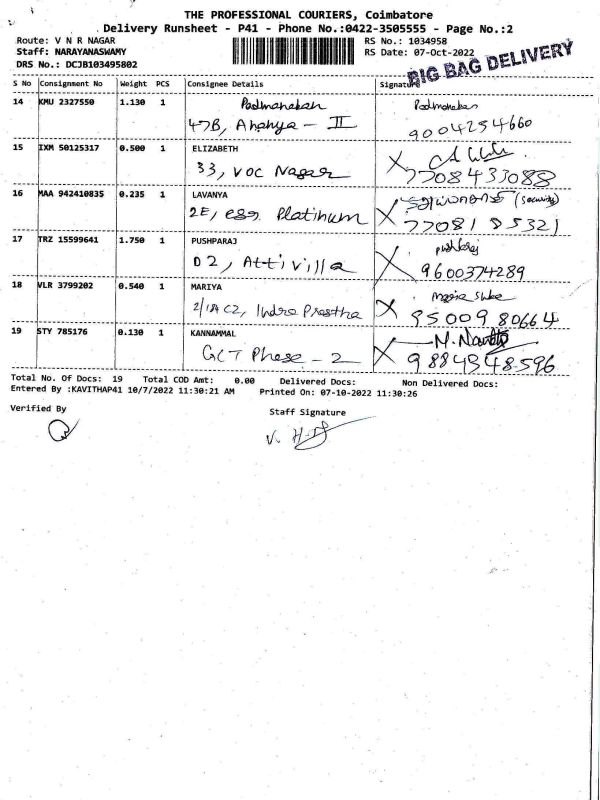 THE PROFESSIONAL COURIERS, Coimbatore
Delivery Runsheet - P41 - Phone No.:0422-3505555 - Page No.:2
Route: V N R NAGAR RS No.: 1034958
Staff: NARAYANASWAMY RS Date: 07-Oct-2022
DRS No.: DCJB103495802
BIG BAG DELIVERY
S No Consignment No Weight PCS Consignee Details Signature
14 KMU 2327550 1.130 1 Padmanaban Padmanaban
47B, Ananya - II 9004254660
15 IXM 50125317 0.500 1 ELIZABETH
33, VOC Nagar 7708433088
16 MAA 942410835 0.235 1 LAVANYA (Security)
2E, Platinum 7708185321
17 TRZ 15599641 1.750 1 PUSHPARAJ pushparaj
D2, Atti villa 9600374289
18 VLR 3799202 0.540 1 MARIYA
2/1A C2, Indra Prastha 9500980664
19 STY 785176 0.130 1 KANNAMMAL
GCT Phase - 2 9884348596
Total No. Of Docs: 19 Total COD Amt: 0.00 Delivered Docs: Non Delivered Docs:
Entered By :KAVITHAP41 10/7/2022 11:30:21 AM Printed On: 07-10-2022 11:30:26
Verified By Staff Signature